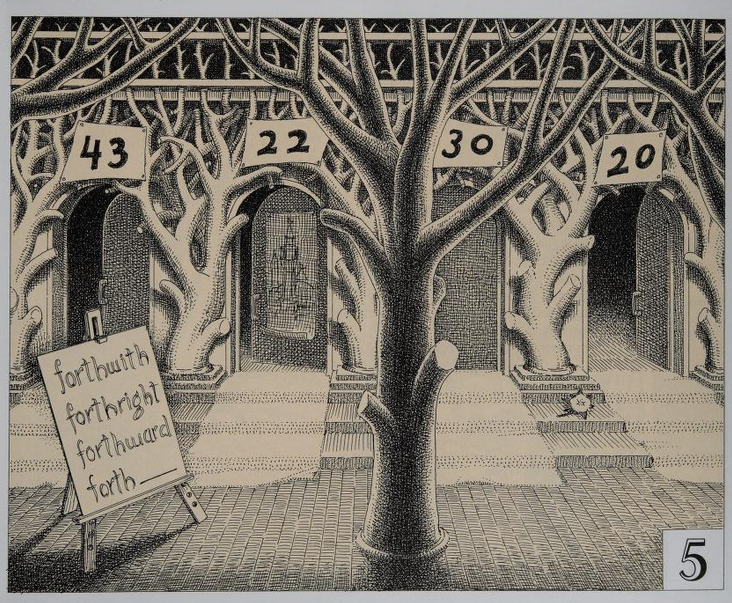 43
22
30
20
forthwith
forthright
forthward
forth ___
5